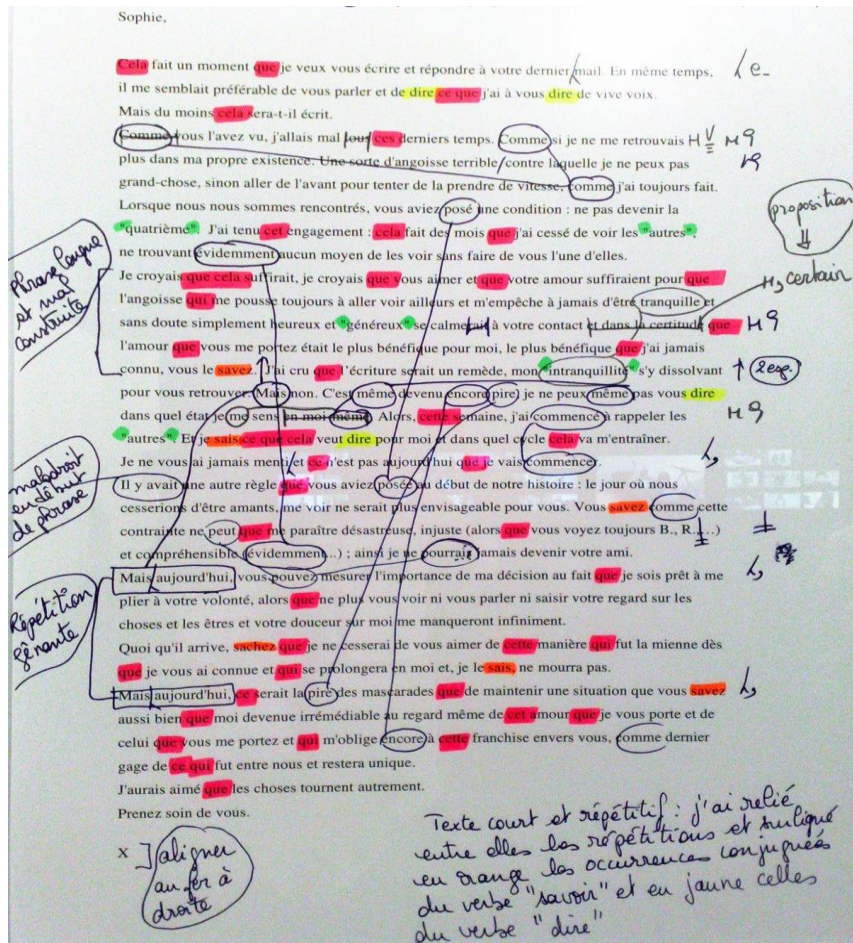 Sophie,
Cela fait un moment que je veux vous écrire et répondre à votre dernier mail. En même temps,
il me semblait préférable de vous parler et de dire ce que j'ai à vous dire de vive voix.
Mais du moins cela sera-t-il écrit.
Comme vous l'avez vu, j'allais mal tous ces derniers temps. Comme si je ne me retrouvais
plus dans ma propre existence. Une sorte d'angoisse terrible, contre laquelle je ne peux pas
grand-chose, sinon aller de l'avant pour tenter de la prendre de vitesse, comme j'ai toujours fait.
Lorsque nous nous sommes rencontrés, vous aviez posé une condition : ne pas devenir la
"quatrième". J'ai tenu cet engagement : cela fait des mois que j'ai cessé de voir les "autres",
ne trouvant évidemment aucun moyen de les voir sans faire de vous l'une d'elles.
Je croyais que cela suffirait, je croyais que vous aimer et que votre amour suffiraient pour que
l'angoisse qui me pousse toujours à aller voir ailleurs et m'empêche à jamais d'être tranquille et
sans doute simplement heureux et "généreux" se calmerait à votre contact et dans la certitude que
l'amour que vous me portez était le plus bénéfique pour moi, le plus bénéfique que j'ai jamais
connu, vous le savez. J'ai cru que l'écriture serait un remède, mon "intranquillité" s'y dissolvant
pour vous retrouver. Mais non. C'est même devenu encore pire, je ne peux même pas vous dire
dans quel état je me sens en moi-même. Alors, cette semaine, j'ai commencé à rappeler les
"autres". Et je sais ce que cela veut dire pour moi et dans quel cycle cela va m'entraîner.
Je ne vous ai jamais menti et ce n'est pas aujourd'hui que je vais commencer.
Il y avait une autre règle que vous aviez posée au début de notre histoire : le jour où nous
cesserions d'être amants, me voir ne serait plus envisageable pour vous. Vous savez comme cette
contrainte ne peut que me paraître désastreuse, injuste (alors que vous voyez toujours B., R.,...)
et compréhensible (évidemment...) ; ainsi je ne pourrais jamais devenir votre ami.
Mais aujourd'hui, vous pouvez mesurer l'importance de ma décision au fait que je sois prêt à me
plier à votre volonté, alors que ne plus vous voir ni vous parler ni saisir votre regard sur les
choses et les êtres et votre douceur sur moi me manqueront infiniment.
Quoi qu'il arrive, sachez que je ne cesserai de vous aimer de cette manière qui fut la mienne dès
que je vous ai connue et qui se prolongera en moi et, je le sais, ne mourra pas.
Mais aujourd'hui, ce serait la pire des mascarades que de maintenir une situation que vous savez
aussi bien que moi devenue irrémédiable au regard même de cet amour que je vous porte et de
celui que vous me portez et qui m'oblige encore à cette franchise envers vous, comme dernier
gage de ce qui fut entre nous et restera unique.
J'aurais aimé que les choses tournent autrement.
Prenez soin de vous.
X
aligner
au fer à
droite
Phrase longue
et mal
construite
maladroit
en début
de phrase
Répétition
gênante
proposition
certain
2 esp.
Texte court et répétitif : j'ai relié
entre elles les répétitions et surligné
en orange les occurrences conjuguées
du verbe "savoir" et en jaune celles
du verbe "dire"